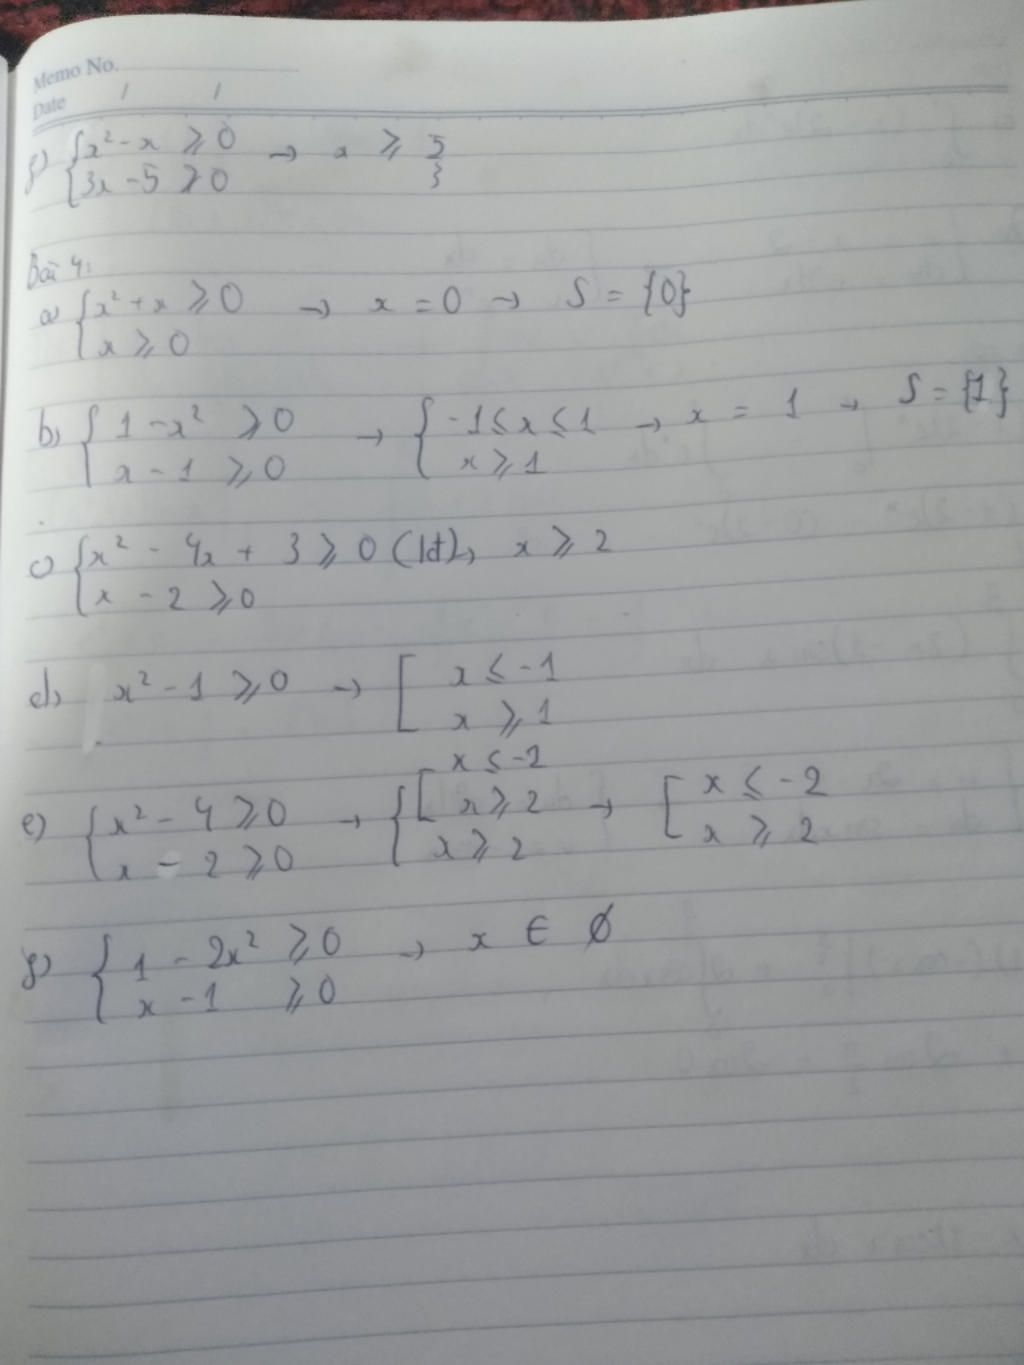 Memo No.
Date / /
f) { x² - x ⩾ 0 → x ⩾ 5/3
{ 3x - 5 ⩾ 0
Bài 4:
a) { x² + x ⩾ 0 → x = 0 → S = {0}
{ x ⩾ 0
b) { 1 - x² ⩾ 0 → { -1 ≤ x ≤ 1 → x = 1 → S = {1}
{ x - 1 ⩾ 0 { x ⩾ 1
c) { x² - 4x + 3 ⩾ 0 (lđ), x ⩾ 2
{ x - 2 ⩾ 0
d) x² - 1 ⩾ 0 → [ x ≤ -1
[ x ⩾ 1
e) { x² - 4 ⩾ 0 → { [ x ≤ -2
[ x ⩾ 2 → [ x ≤ -2
{ x - 2 ⩾ 0 { x ⩾ 2 [ x ⩾ 2
f) { 1 - 2x² ⩾ 0 → x ∈ ∅
{ x - 1 ⩾ 0